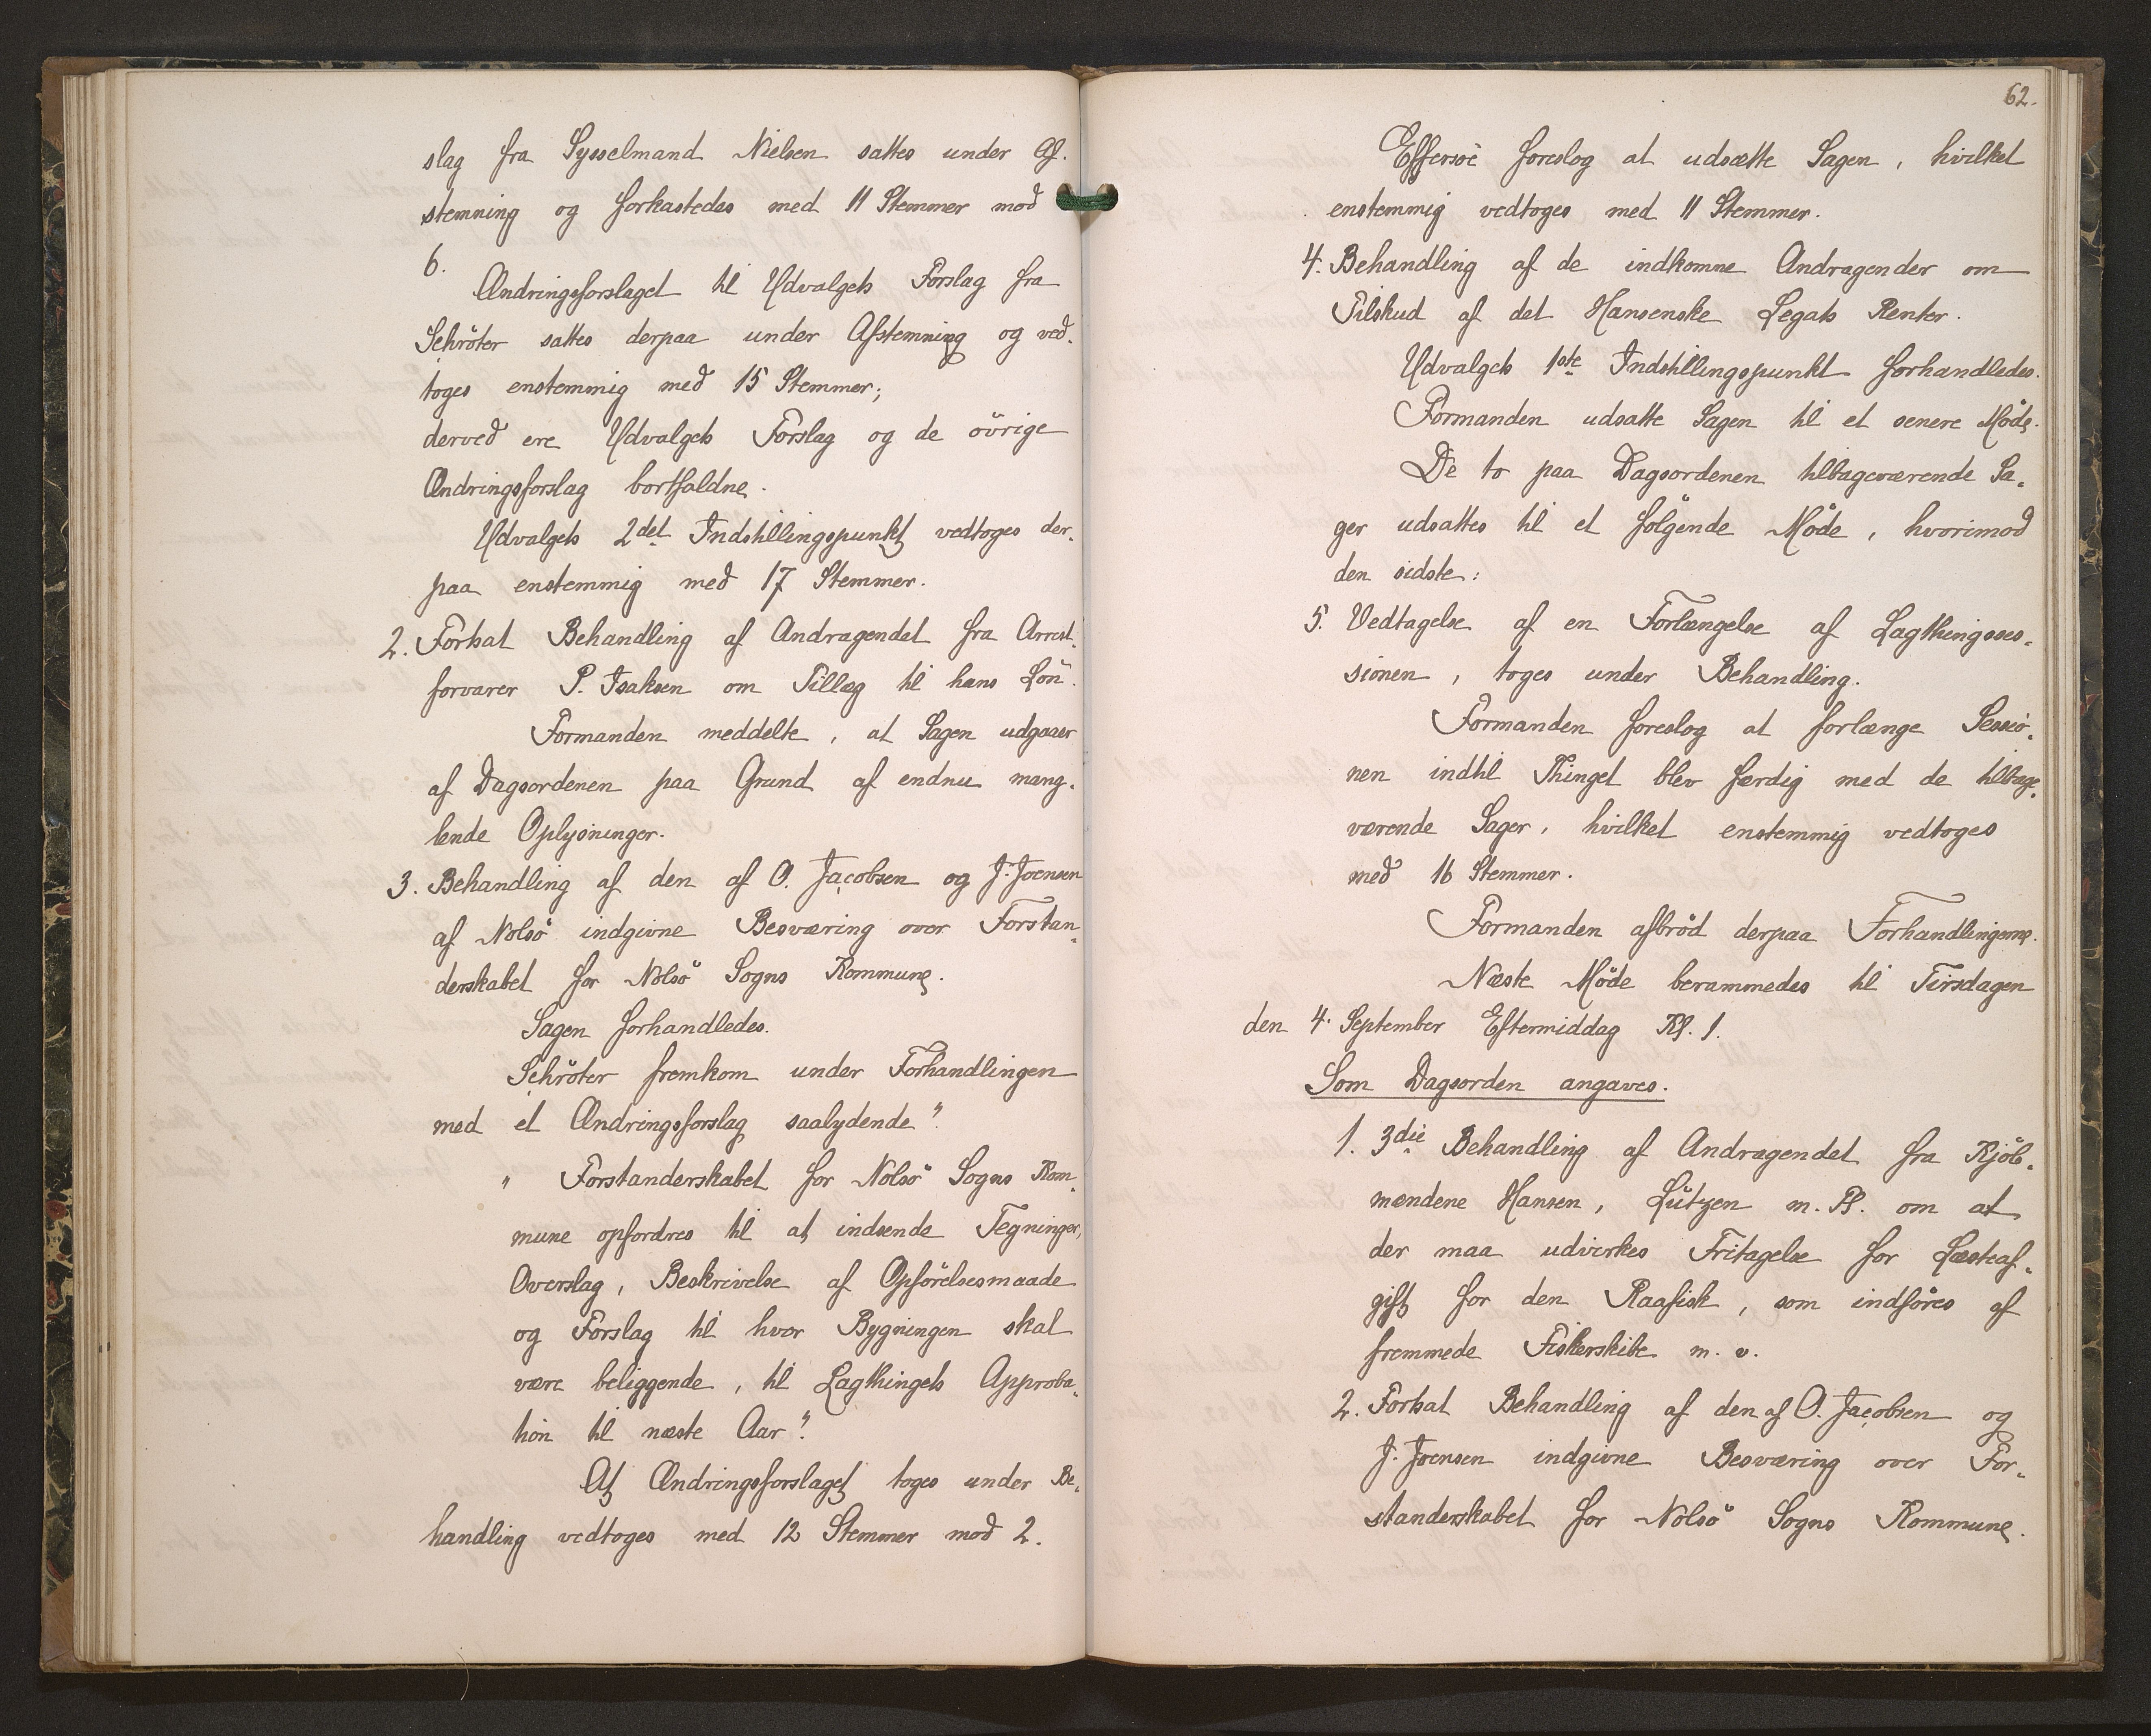 slag fra Sysselmand Nielsen sattes under Af-
stemning og forkastedes med 11 Stemmer mod
6.
Ændringsforslaget til Udvalgets Forslag fra
Schröter sattes derpaa under Afstemning og ved-
toges enstemmig med 15 Stemmer;
derved ere Udvalgets Forslag og de övrige
Ændringsforslag bortfaldne.
Udvalgets 2det Indstillingspunkt vedtoges der-
paa enstemmig med 17 Stemmer.
2. Fortsat Behandling af Andragendet fra Arrest-
forvarer P. Isaksen om Tillæg til hans Lön.
Formanden meddelte, at Sagen udgaaer
af Dagsordenen paa Grund af endnu mang-
lende Oplysninger.
3. Behandling af den af O. Jacobsen og J. Joensen
af Nolsö indgivne Besværing over Forstan-
derskabet for Nolsö Sogns Kommune.
Sagen forhandledes.
Schröter fremkom under Forhandlingen
med et Ændringsforslag saalydende":
" Forstanderskabet for Nolsö Sogns Kom-
mune opfordres til at indsende Tegninger,
Overslag, Beskrivelse af Opförelsesmaade
og Forslag til hvor Bygningen skal
være beliggende, til Lagthingets Approba-
tion til næste Aar".
At Ændringsforslaget toges under Be-
handling vedtoges med 12 Stemmer mod 2.
62.
Effersöe foreslog at udsætte Sagen, hvilket
enstemmig vedtoges med 11 Stemmer.
4. Behandling af de indkomne Andragender om
Tilskud af det Hansenske Legats Renter.
Udvalgets 1ste Indstillingspunkt forhandledes.
Formanden udsatte Sagen til et senere Möde.
De to paa Dagsordenen tilbageværende Sa-
ger udsattes til et fölgende Möde, hvorimod
den sidste:
5. Vedtagelse af en Forlængelse af Lagthingsses-
sionen, toges under Behandling.
Formanden foreslog at forlænge Sessio-
nen indtil Thinget blev færdig med de tilbage-
værende Sager, hvilket enstemmig vedtoges
med 16 Stemmer.
Formanden afbröd derpaa Forhandlingerne.
Næste Möde berammedes til Tirsdagen
den 4. September Eftermiddag Kl. 1.
Som Dagsorden angaves.
1. 3die Behandling af Andragendet fra Kjöb-
mændene Hansen, Lützen m. Fl. om at
der maa udvirkes Fritagelse for Læsteaf-
gift for den Raafisk, som indföres af
fremmede Fiskerskibe m. v.
2. Fortsat Behandling af den af O. Jacobsen og
J. Joensen indgivne Besværing over For-
standerskabet for Nolsö Sogns Kommune.